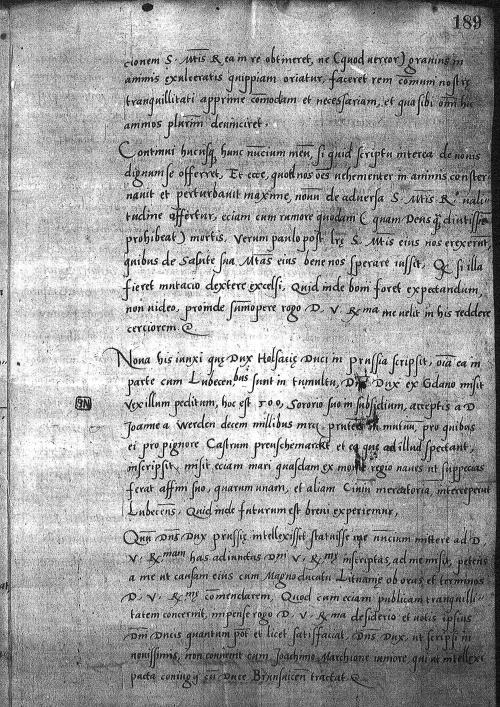 189
cionem S. Mtis R ea in re obtineret, ne (quod vereor) gravius in
animis exulceratis quippiam oriatur, faceret rem comūni nostre
tranquillitati apprime comodam et necessariam, et qua sibi omniū
animos plurimū devinciret.
Continui hucusq hunc nuncium meū, si quid scriptu interea de novis
dignum se offerret, Et ecce, quod nos oēs vehementer in animis conster-
navit et perturbavit maxime, novū de adversa S. Mtis R. vali-
tudine affertur, eciam cum rumore quodam (quam Deus q diutissime
prohibeat) mortis. Verum paulo post lrę S. Mtis eius nos erexerut,
quibus de Salute sua Mtas eius bene nos sperare iussit, Qc si illa
fieret mutacio dextere excelsi, Quid inde boni foret expectandum,
non video, proinde sumopere rogo D. V. R ma me velit in his reddere
cerciorem.
Nova his iunxi quę Dux Holsacię Duci in prussia scripsit, oīa ea in
parte cum Lubecen bus sunt in tumultu, Dux ex Gdano misit
vexillum peditum, hoc est 500, Sororio suo in subsidium, acceptis a D
Joanne a Werden decem millibus mrc. pruten mutuū, pro quibus
ei pro pignore Castrum preuschemarckt et ea quę ad illud spectant,
inscripsit, misit eciam mari quasdam ex monte regio naves ut suppecias
ferat affini suo, quarum unam, et aliam Civiū mercatoriā, interceperut
Lubecens. Quid inde futurum est brevi experiemur,
Quū Dns Dux prussię intellexisset statuisse me nuncium mittere ad D.
V. R mam has adiunctas Dni V. R me inscriptas, ad me misit, petens
a me ut causam eius cum Magno ducatu Lituanię ob oras et terminos
D. V. R me comendarem, Quod cum eciam publicam tranquilli-
tatem concernit, impense rogo D. V. R ma desiderio et votis ipsius
Dni Ducis quantum pot et licet satisfaciat, Dns Dux, ut scripsi in
novissimis, non convenit cum Joachimo Marchione iuniore, qui ut intellexi
pacta coniugii cū Duce Brunsvicen tractat.